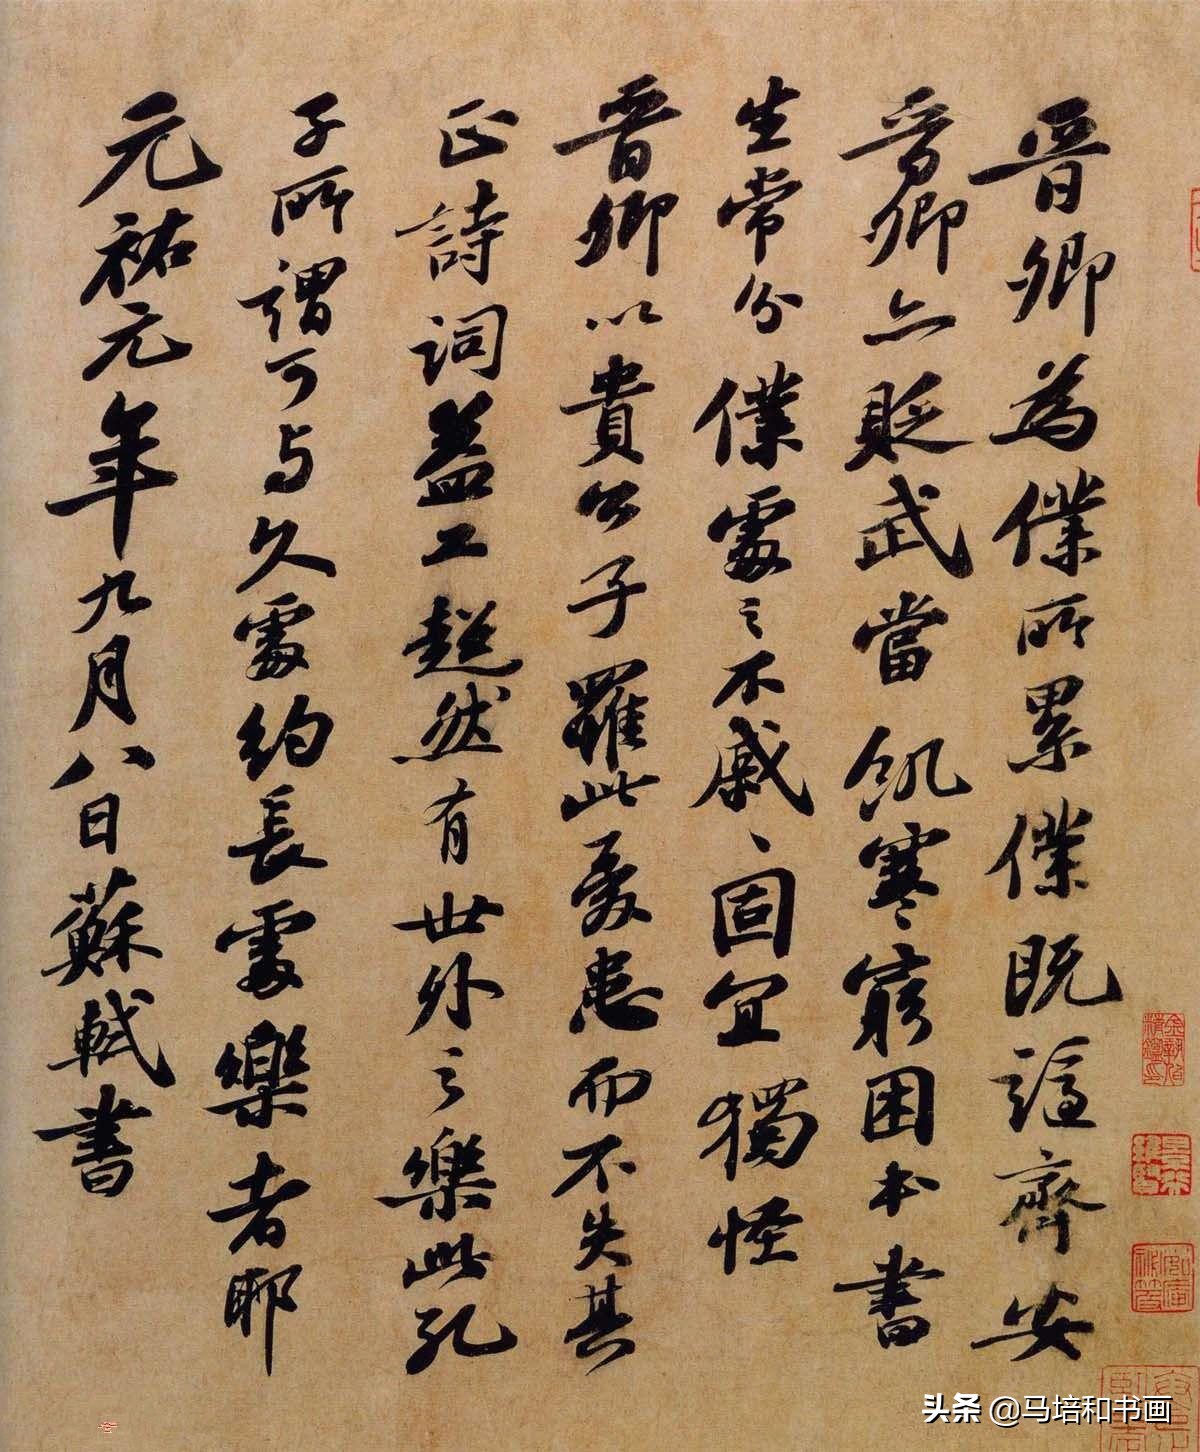 晉卿為僕所累僕既謫齊安
晉卿亦貶武當飢寒窮困本書
生常分僕處之不戚戚固宜獨怪
晉卿以貴公子罹此憂患而不失其
正詩詞益工超然有世外之樂此孔
子所謂可与久處約長處樂者耶
元祐元年九月八日蘇軾書
头条 @马培和书画